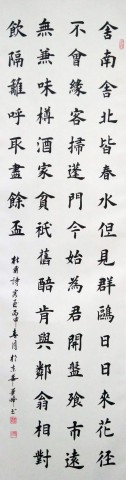 舍南舍北皆春水但見群鷗日日來花徑
不曾緣客掃蓬門今始為君開盤飧市遠
無兼味樽酒家貧祇舊醅肯與鄰翁相對
飲隔籬呼取盡餘盃
杜甫詩客至丙申春月於京華